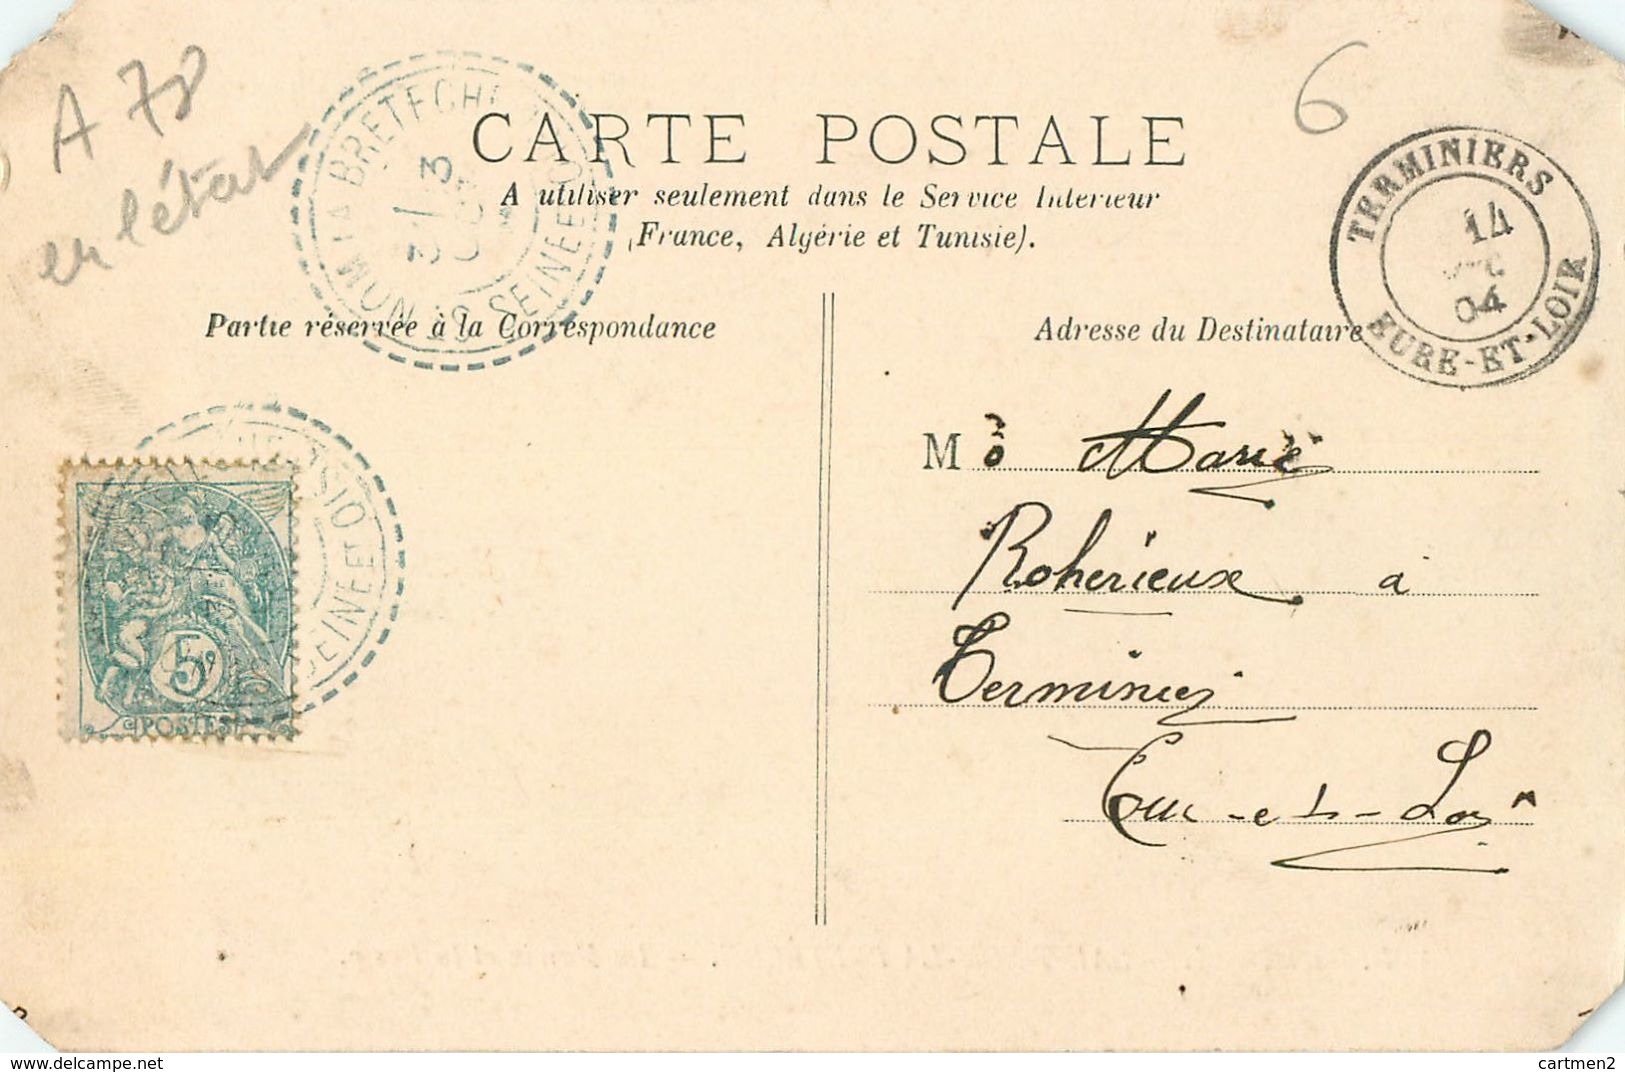 A 78
en l'état
6
CARTE POSTALE
A utiliser seulement dans le Service Intérieur
(France, Algérie et Tunisie).
LA BRETECHE
SEINE ET O
TERMINIERS
14
04
EURE-ET-LOIR
Partie réservée à la Correspondance
Adresse du Destinataire
M Marie
Roherieux à
Terminiers
Eure-et-Loir
SEINE ET O
5
POSTES
cartmen2